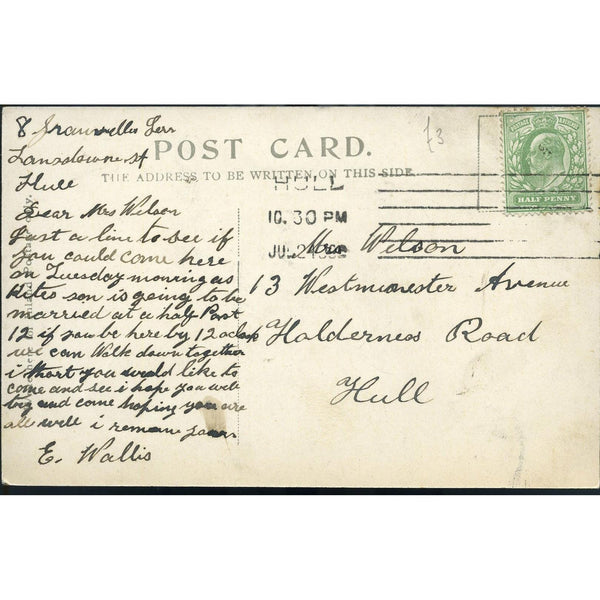 8 Granville Terr
Lansdowne st
Hull
Dear Mrs Wilson
Just a line to see if
you could come here
on Tuesday morning as
Kites son is going to be
married at a half Past
12 if you be here by 12 oclock
we can Walk down together
i thort you would like to
come and see i hope you will
try and come hoping you are
all well i remain yours
E. Wallis
POST CARD.
THE ADDRESS TO BE WRITTEN ON THIS SIDE.
£3
HULL
10.30 PM
JU
HALF PENNY
Mrs Wilson
13 Westminester Avenue
Holderness Road
Hull